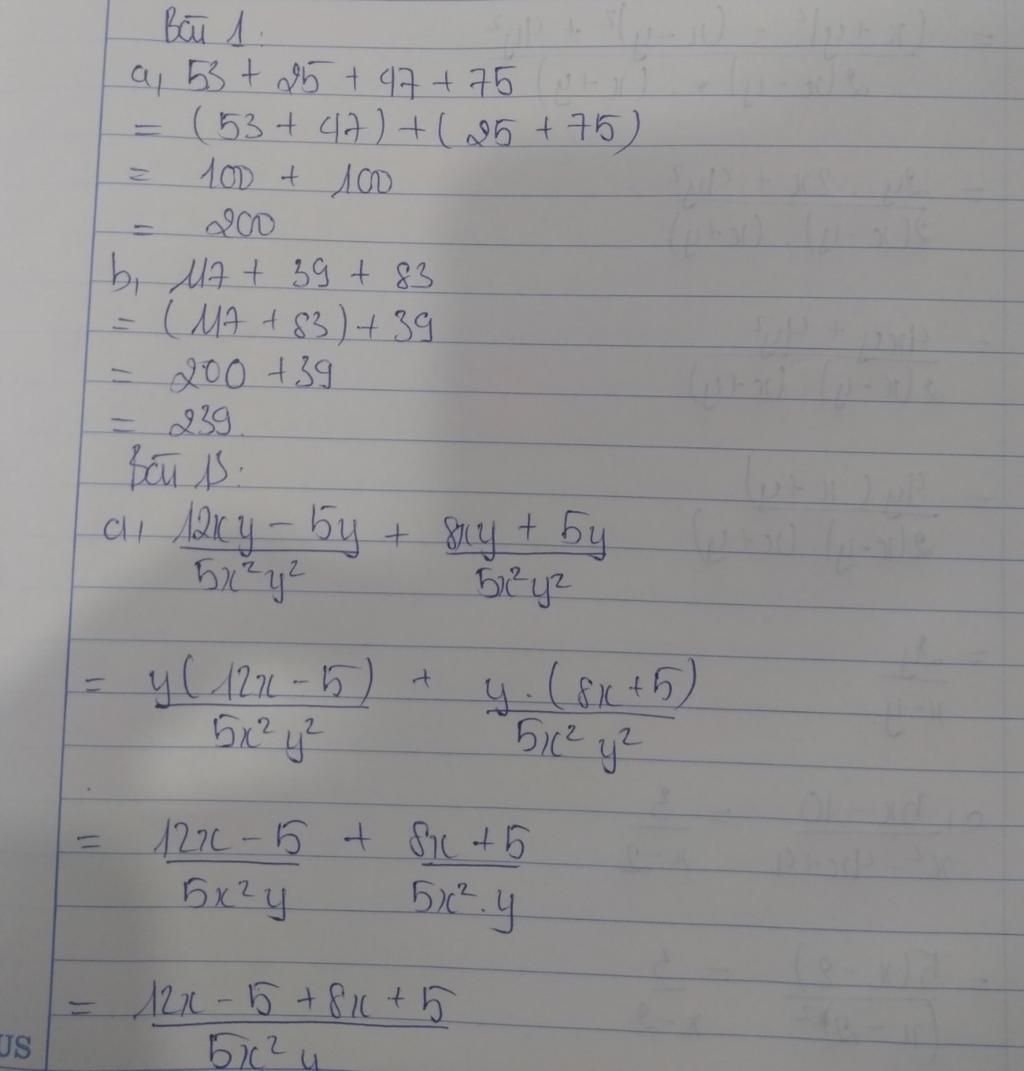 Bài 1:
a, 53 + 25 + 47 + 75
= (53 + 47) + (25 + 75)
= 100 + 100
= 200
b, 117 + 39 + 83
= (117 + 83) + 39
= 200 + 39
= 239.
Bài 13:
a, (12xy - 5y)/(5x²y²) + (8xy + 5y)/(5x²y²)
= y(12x - 5)/(5x²y²) + y.(8x + 5)/(5x²y²)
= (12x - 5)/(5x²y) + (8x + 5)/(5x².y)
= (12x - 5 + 8x + 5)/(5x²y)
US